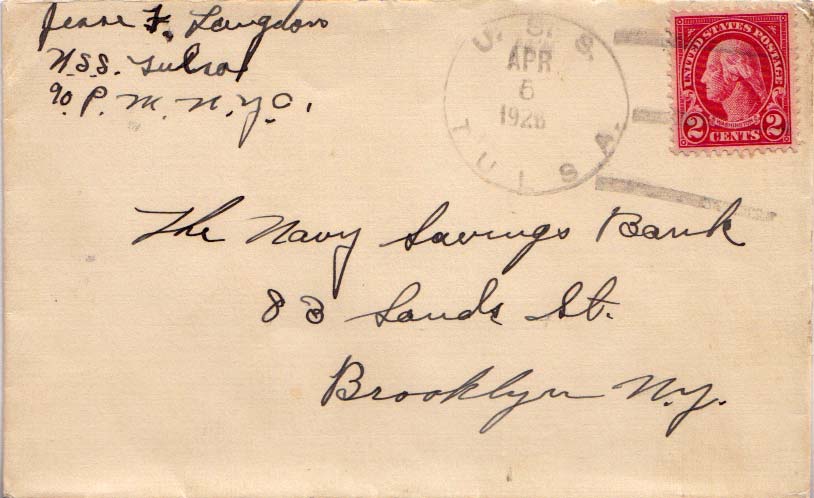 Jesse F. Langdon
U.S.S. Tulsa
c/o P. M. N.Y.C.
U. S. S.
APR
6
1926
TULSA.
UNITED STATES POSTAGE
WASHINGTON
2 CENTS 2
The Navy Savings Bank
83 Sands St.
Brooklyn N.Y.